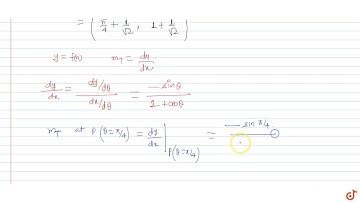 = ( π/4 + 1/√2 , 1 + 1/√2 )
y = f(x) m_T = dy/dx
dy/dx = (dy/dθ)/(dx/dθ) = (- sinθ)/(1 + cosθ)
m_T at P (θ = π/4) = dy/dx |_P(θ = π/4) = - sin π/4